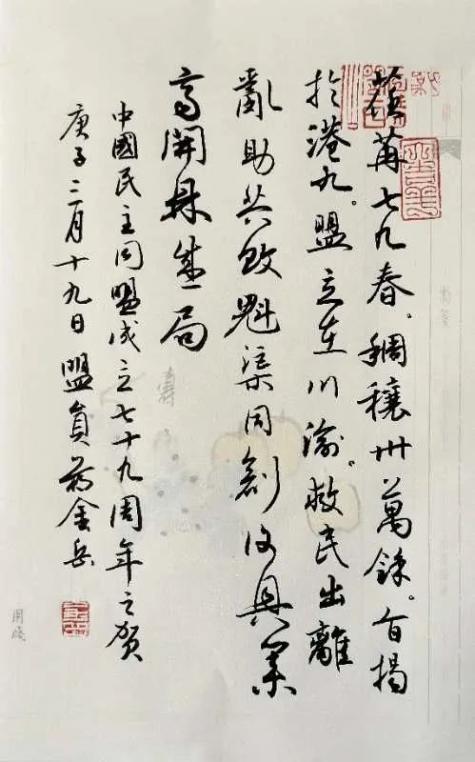 荏苒七九春。稠穰卅萬餘。揭
於港九。盟立在川渝。救民出離
亂助共敗魁渠同創復興業
高開盛局
中國民主同盟成立七十九周年之賀
庚子三月十九日盟員金岳